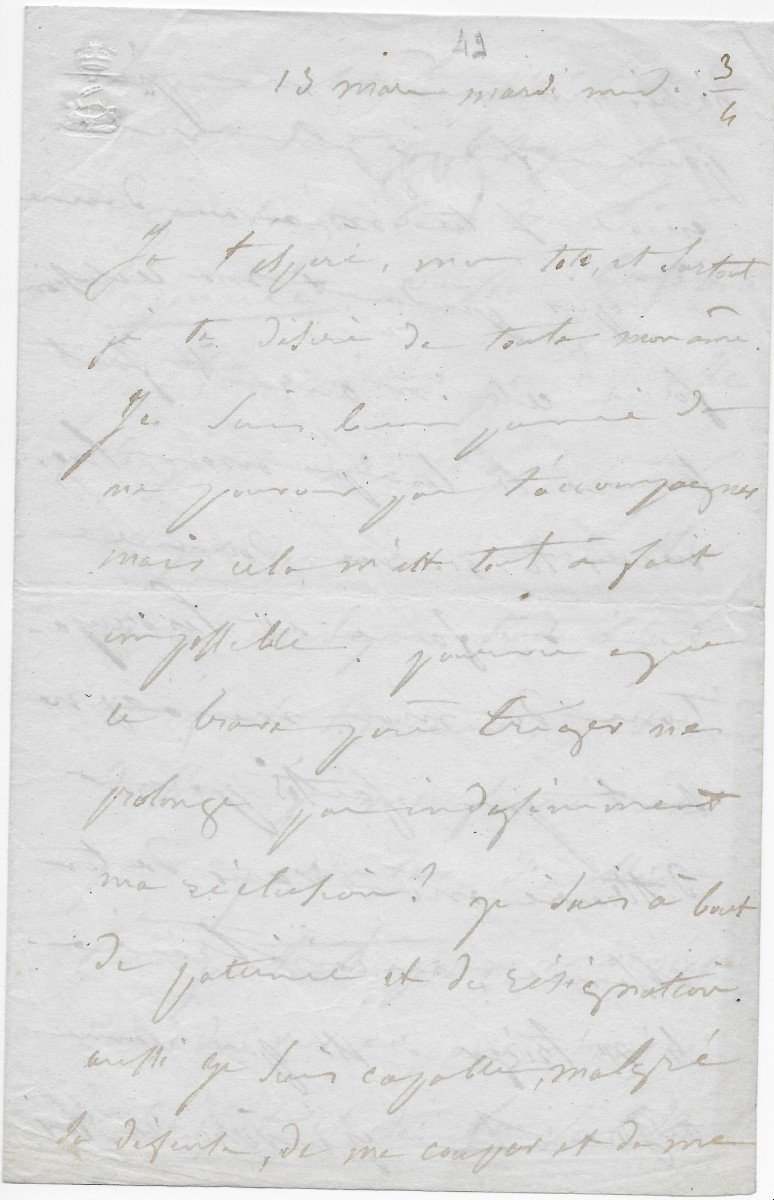 42
13 mars mardi midi ¾
Je t'espère, mon toto, et surtout
je te désire de toute mon âme.
Je suis bien
ne pouvoir pas t'accompagner
mais cela m'est tout à fait
impossible. pourvu que
ce brave père triger ne
prolonge pas indéfiniment
ma réclusion? je suis à bout
de patience et de résignation
aussi je suis capable, malgré
sa défense, de me couper et de me